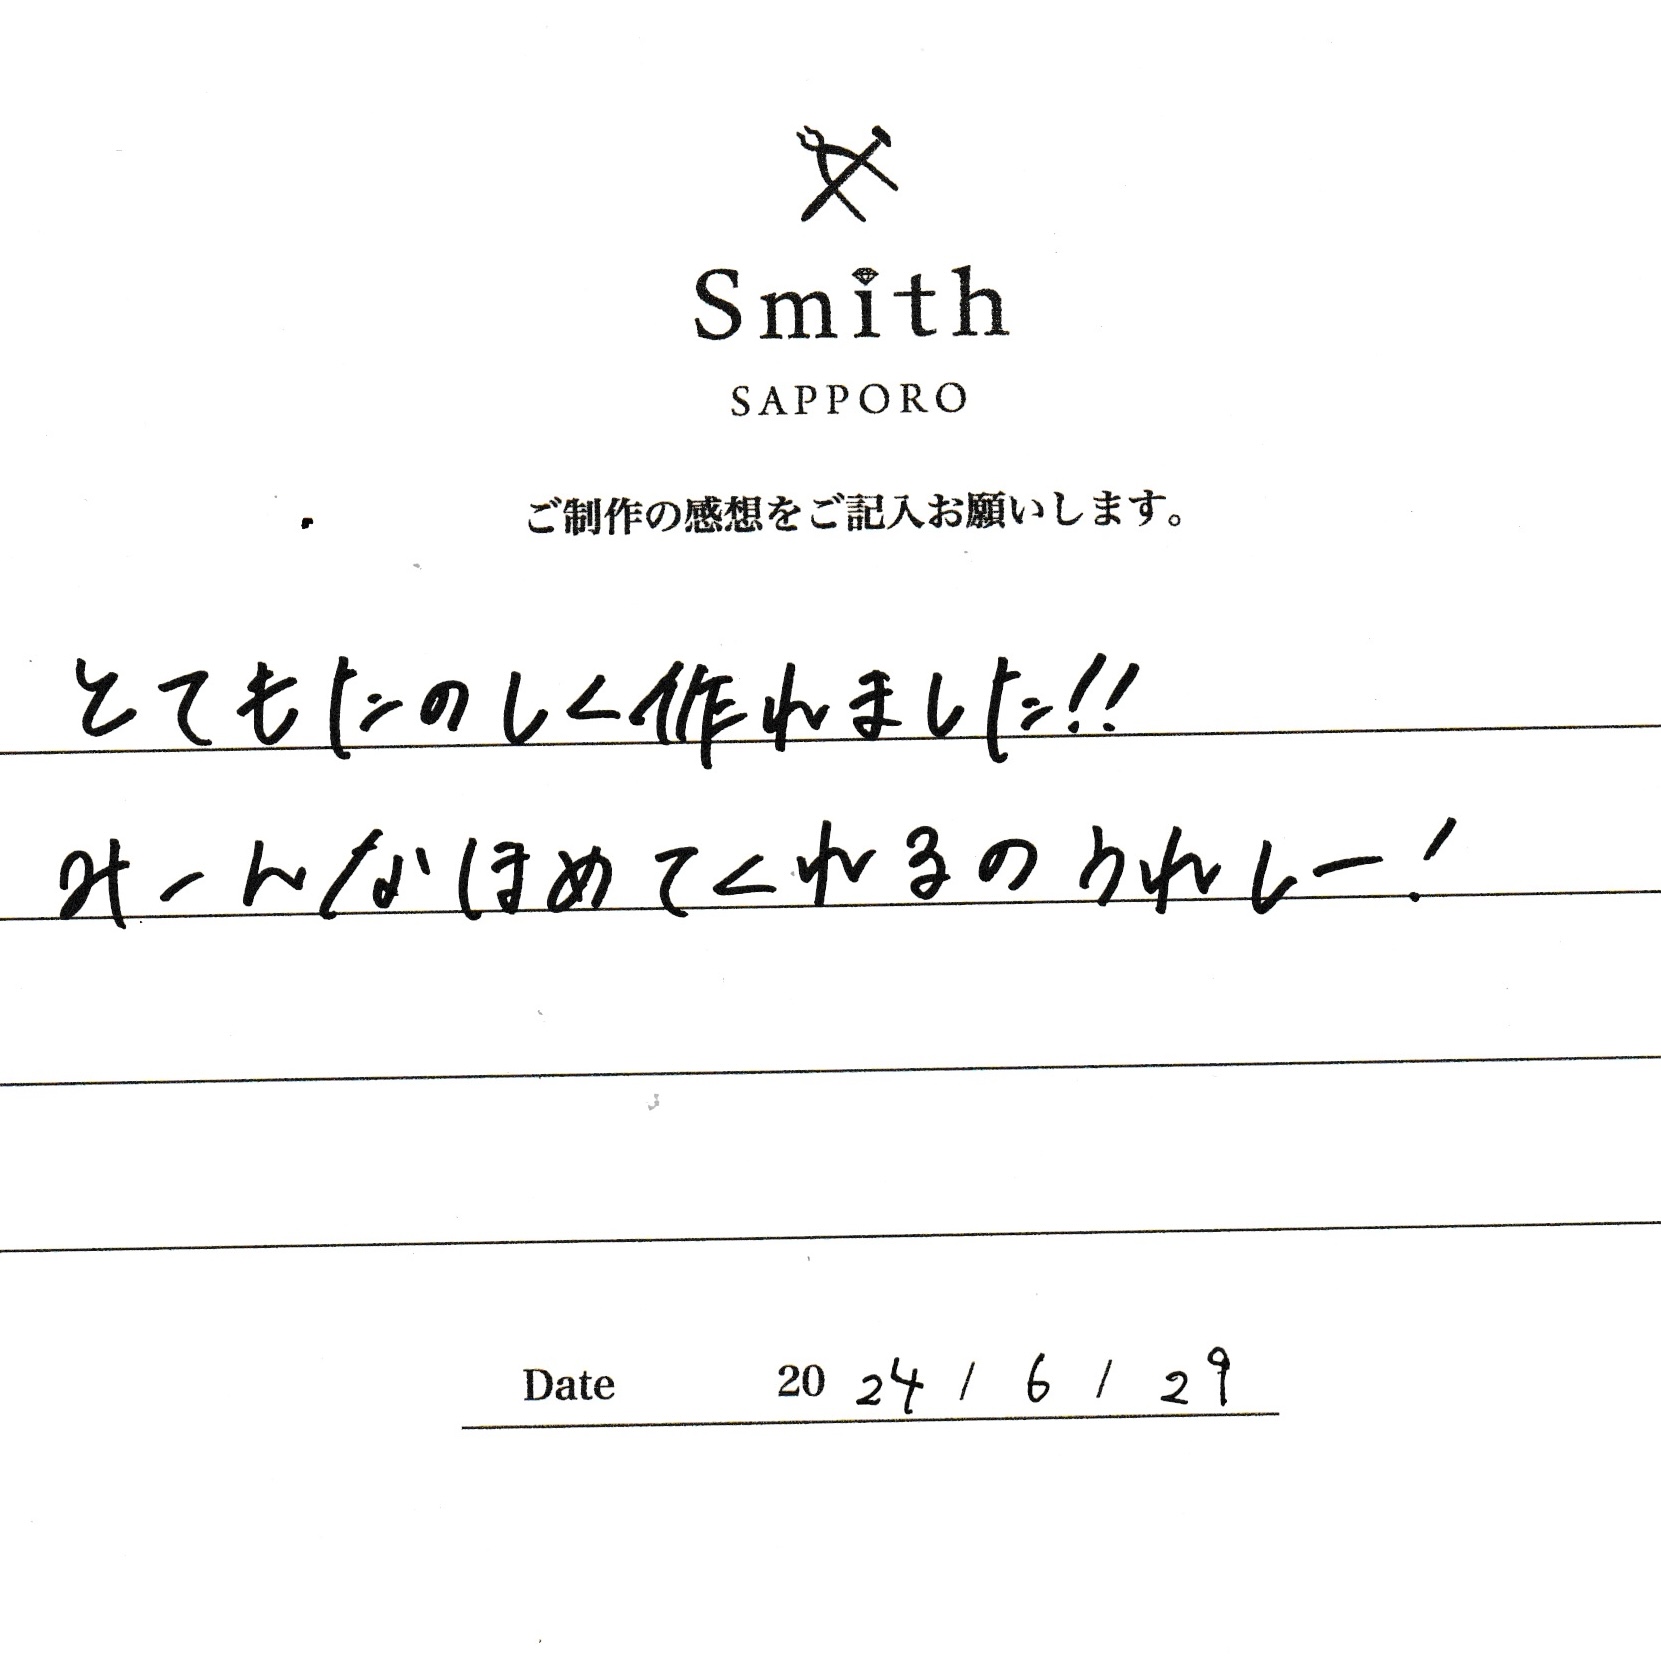 Smith
SAPPORO
ご制作の感想をご記入お願いします。
とてもたのしく作れました!!
みーんなほめてくれるのうれしー!
Date 2024 / 6 / 29